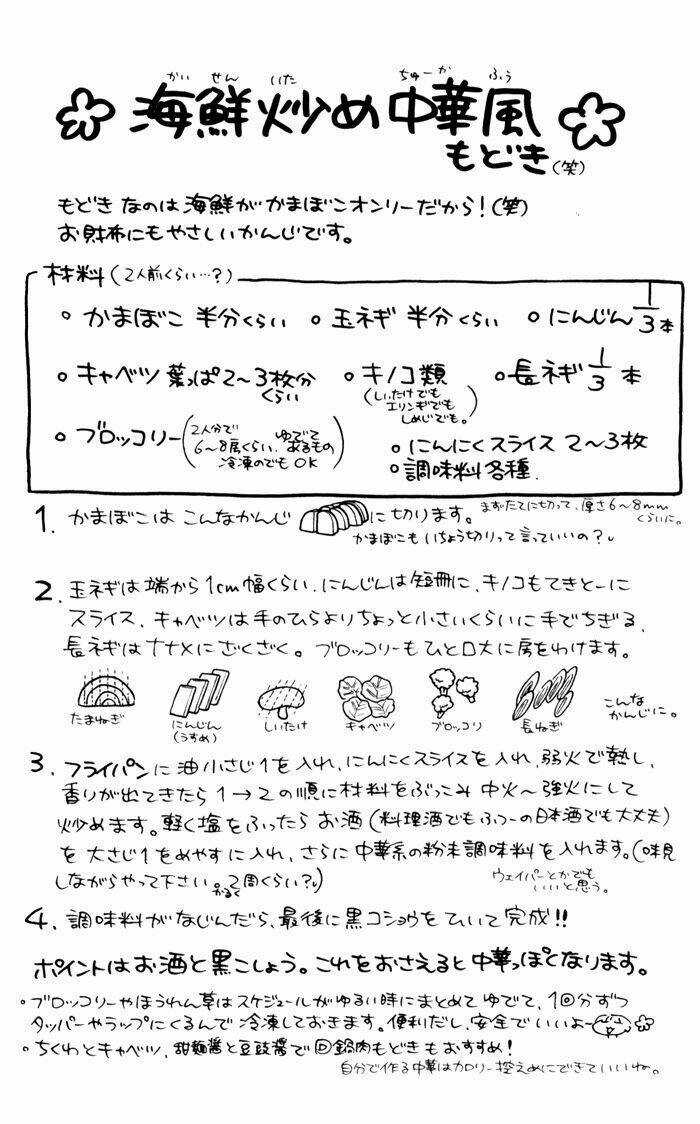 かい せん いた ちゅーか ふう
海鮮炒め中華風
もどき(笑)
もどきなのは海鮮がかまぼこオンリーだから!(笑)
お財布にもやさしいかんじです。
材料(2人前くらい…?)
○かまぼこ 半分くらい ○玉ネギ 半分くらい ○にんじん1/3本
○キャベツ 葉っぱ2〜3枚分くらい ○キノコ類(しいたけでもエリンギでもしめじでも。) ○長ネギ1/3本
○ブロッコリー(2人分で6〜8房くらい、ゆでてあるもの 冷凍のでもOK)
○にんにくスライス 2〜3枚
○調味料各種.
1. かまぼこはこんなかんじ に切ります。まずたてに切って、厚さ6〜8mmくらいに。
かまぼこもいちょう切りって言っていいの?
2. 玉ネギは端から1cm幅くらい、にんじんは短冊に、キノコもてきとーに
スライス、キャベツは手のひらよりちょっと小さいくらいに手でちぎる、
長ネギはナナメにざくざく。ブロッコリーもひと口大に房をわけます。
たまねぎ にんじん(うすめ) しいたけ キャベツ ブロッコリ 長ねぎ こんなかんじに。
3. フライパンに油小さじ1を入れ、にんにくスライスを入れ、弱火で熱し、
香りが出てきたら1→2の順に材料をぶっこみ中火〜強火にして
炒めます。軽く塩をふったらお酒(料理酒でもふつーの日本酒でも大丈夫)
を大さじ1をめやすに入れ、さらに中華系の粉末調味料を入れます。(味見
しながらやって下さい。かるく2周くらい?)
ウェイパーとかでもいいと思う。
4. 調味料がなじんだら、最後に黒コショウをひいて完成!!
ポイントはお酒と黒こしょう。これをおさえると中華っぽくなります。
○ブロッコリーやほうれん草はスケジュールがゆるい時にまとめてゆでて、1回分ずつ
タッパーやラップにくるんで冷凍しておきます。便利だし、安全でいいよー
○ちくわとキャベツ、甜麺醤と豆豉醤で回鍋肉もどきもおすすめ!
自分で作る中華はカロリー控えめにできていいね。